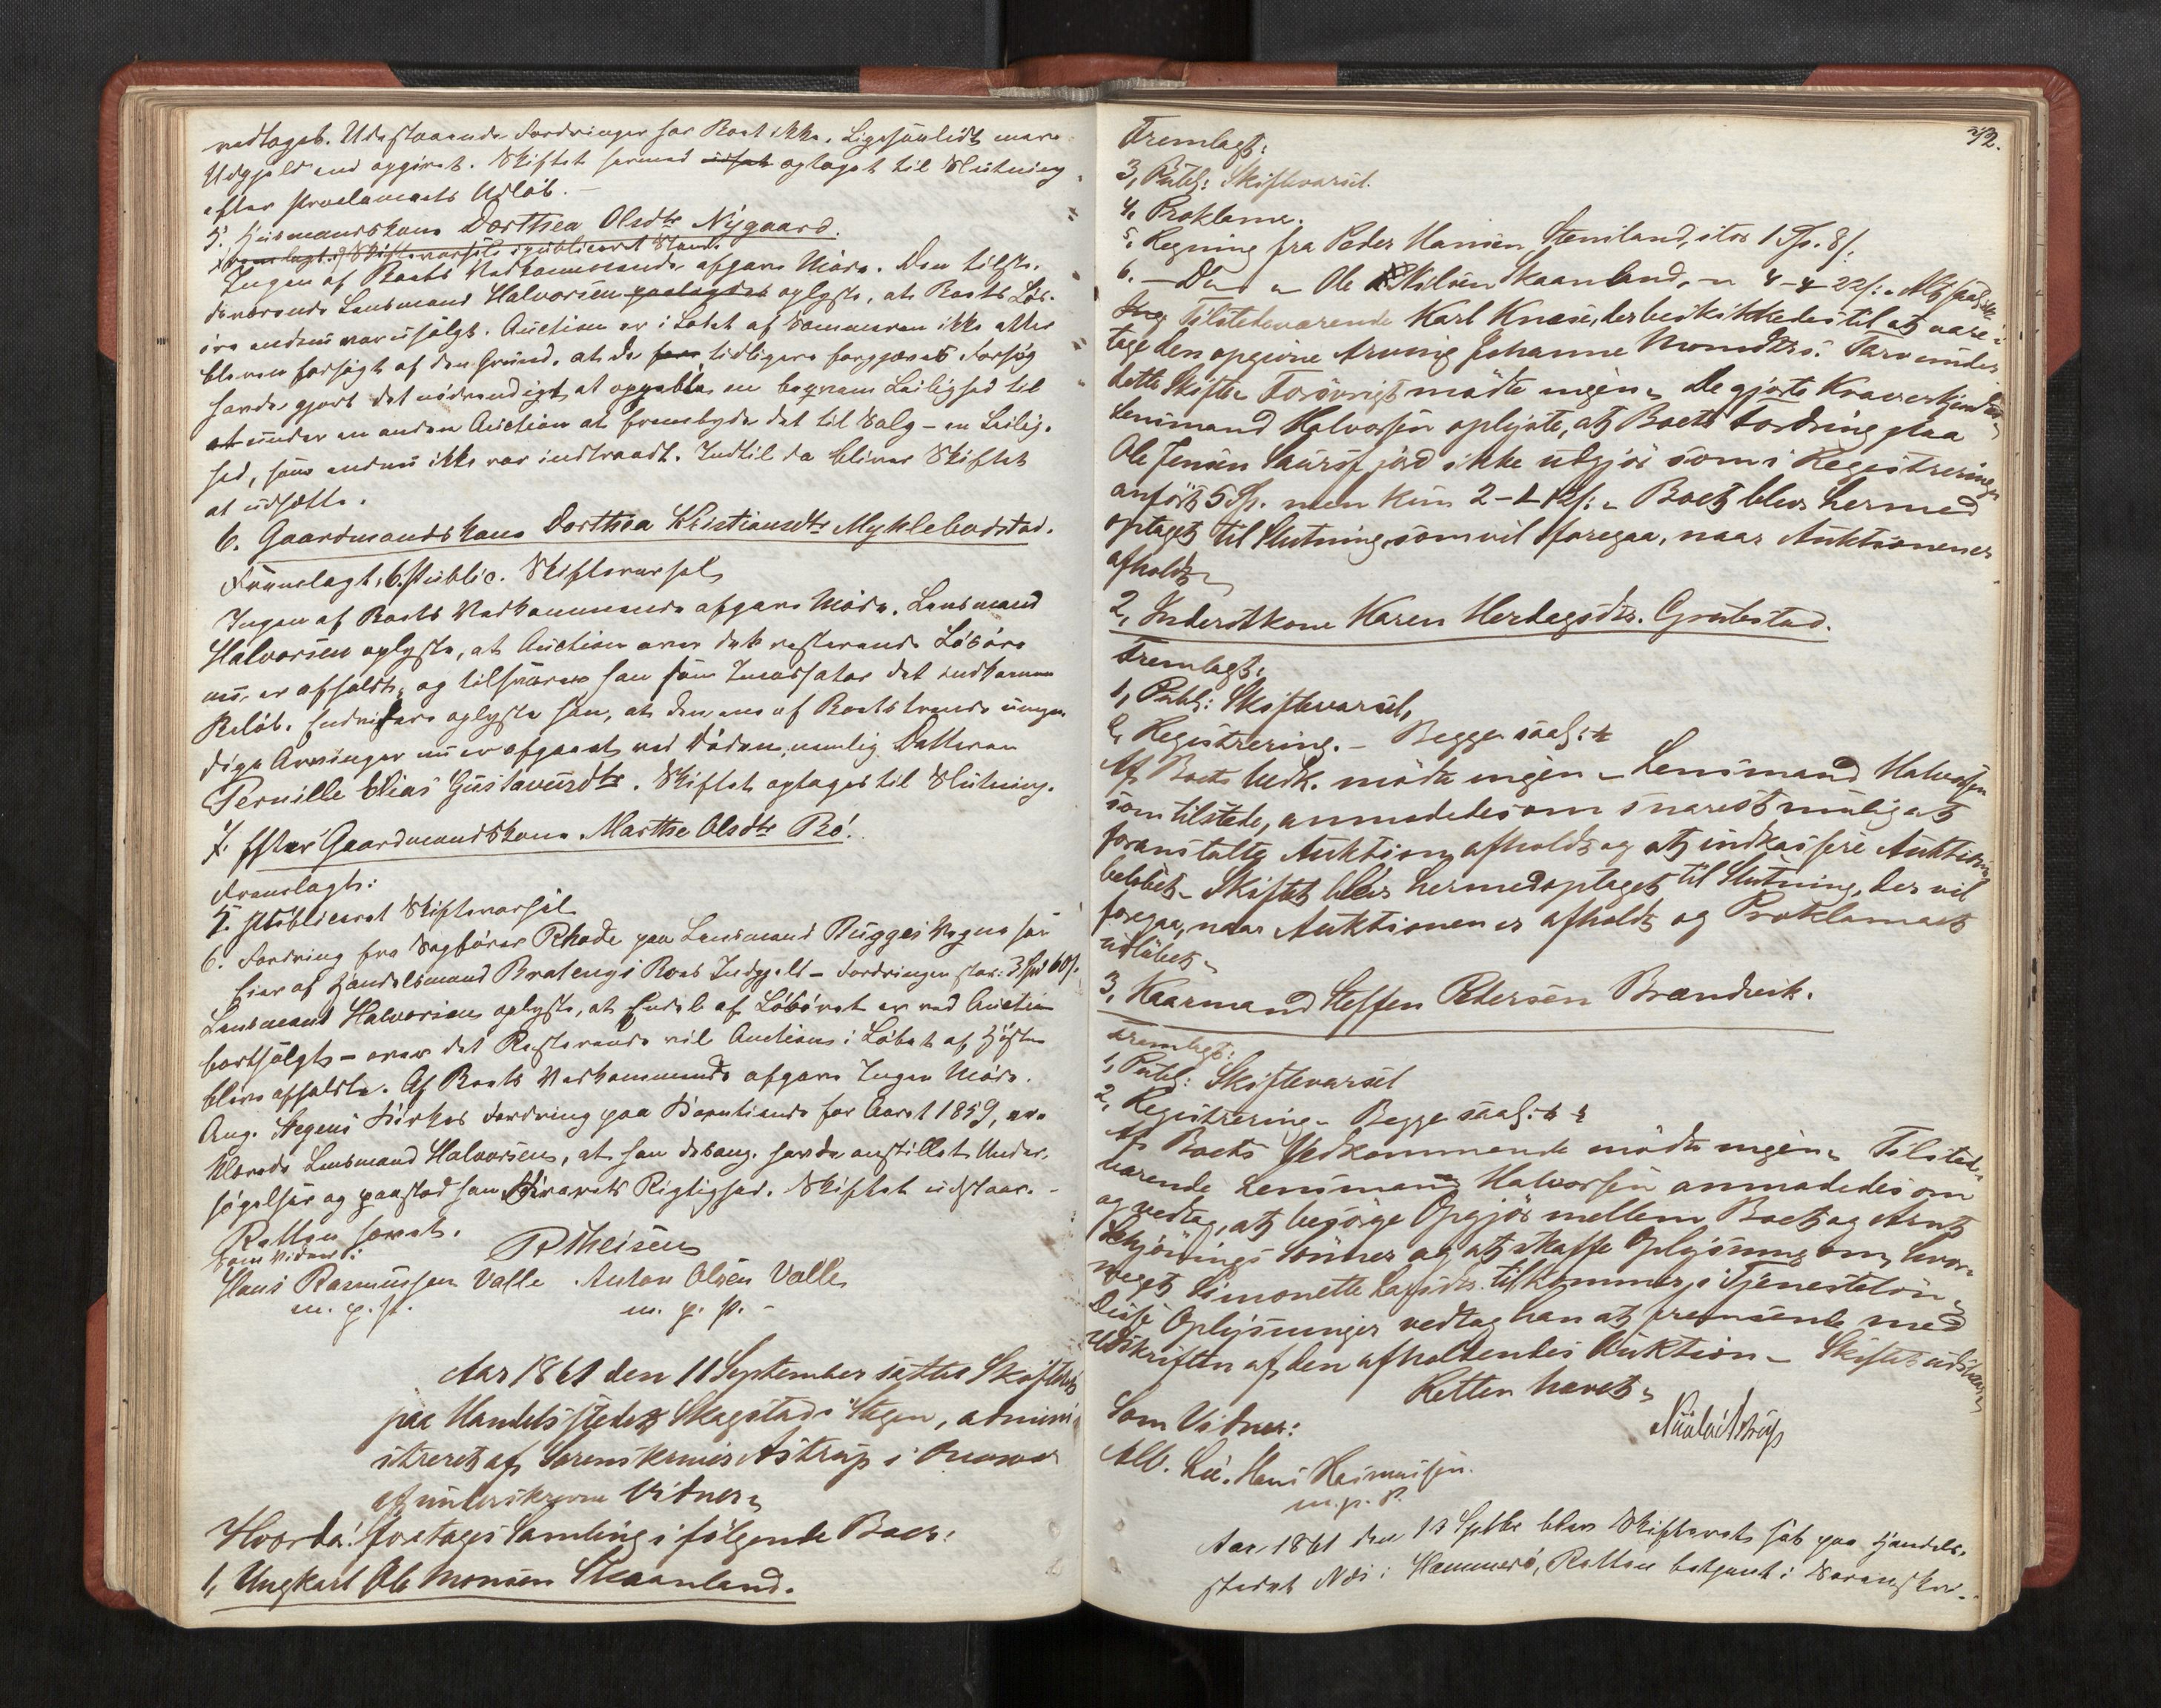 vedtaget. Udestaaende Fordringer har Boet ikke. Ligesaalidt mere
Udgjeld end opgivet. Skiftet hermed udsat optaget til Slutning
efter Proclamaets Udløb. –
5. Huusmandskone Dorthea Olsdtr Nygaard.
Fremlagt: 5 Skiftevarsel publiceret
Ingen af Boets Vedkommende afgave Møde. Den tilste-
deværende Lensmand Halvorsen paalagdes oplyste, at Boets Løs-
øre endnu var usolgt. Auction er i Løbet af Sommeren ikke
bleven forsøgt af den Grund, at de tidligere forgjæves Forsøg
havde gjort det nødvendigt at oppebie en beqvem Leilighed til
at under en anden Auction at frembyde det til Salg – en Leilig-
hed, som endnu ikke var indtraadt. Indtil da bliver Skiftet
at udsætte.
6. Gaardmandskone Dorthea Kristiansdtr Myklebostad.
Fremlagt: 6. Public. Skiftevarsel
Ingen af Boets Vedkommende afgave Møde. Lensmand
Halvorsen oplyste, at Auction over det resterende Løsøre
nu er afholdt, og tilsvarer han som Incassator det indkomne
Beløb. Endvidere oplyste han, at den ene af Boets trende umyn-
dige Arvinger nu er afgaaet ved Døden, nemlig Datteren
Pernille Elias Gustavusdtr. Skiftet optages til Slutning.
7. Efter Gaardmandskone Marthe Olsdtr Bø.
Fremlagt:
5. Publiceret Skiftevarsel
6. Fordring fra Sagfører Rhode paa Lensmand Bugges Vegne som
Eier af Handelsmand Bratengs Boes Indgjeld – Fordringen stor: 3 Spd 60 s.
Lensmand Halvorsen oplyste, at Endel af Løsøret er ved Auction
bortsolgt – over det Resterende vil Auction i Løbet af Høsten
blive afholdte. Af Boets Vedkommende afgave Ingen Møde.
Ang. Stegens Kirkes Fordring paa Korntiende for Aaret 1859,
Lensmand Halvorsen, at han desang. havde anstillet Under-
søgelser og paastod han Kravets Rigtighed. Skiftet udstaar. –
Retten hævet.
Som Vidner: RTheisen
Hans Rasmussen Valle Anton Olsen Valle
m. p. P. m. p. P. –
Aar 1861 den 11 September sattes Skifteret
paa Handelsstedet Skagstad i Stegen, admini-
streret af Sorenskriver Astrup i Overvær
af underskrevne Vidner.
Hvorda: foretages Samling i følgende Boer:
1, Ungkarl Ole Monsen Skaanland.
32.
Fremlagt:
3, Publ: Skiftevarsel.
4. Proklama.
5. Regning fra Peder Hansen Stensland, stor 1 Sp. 8 s.
6. – Do – Ole Nilsen Skaanland, – 4-4-22 s: –
Tilstedeværende Karl Knæse, der beskikkedes til at vare-
tage den opgivne Arving Johanne Monsdtrs. Tarv under
dette Skifte. Forøvrigt mødte ingen. De gjorte Krav erkjendtes
Lensmand Halvorsen oplyste, at Boets Fordring paa
Ole Jensen ikke udgjør som i Registreringen
anført 5 Sp. men kun 2-2-12 s: – Boet blev hermed
optaget til Slutning, som vil foregaa, naar Auktionen er
afholdt.
2, Inderstkone Karen Herlegsdtr. Grøtestad.
Fremlagt:
1, Publ: Skiftevarsel,
2, Registrering. – Begge saal:
Af Boets Vedk. mødte ingen – Lensmand Halvorsen
som tilstede, anmodedes om snarest muligt at
foranstalte Auktion afholdt og at indkassere Auktions-
beløbet. Skiftet blev hermed optaget til Slutning, der vil
foregaa, naar Auktionen er afholdt og Proklamaet
udløbet.
3, Kaarmand Steffen Petersen Brændvik.
Fremlagt:
1, Publ: Skiftevarsel
2, Registrering. Begge saal:
Af Boets Vedkommende mødte ingen. Tilstede-
værende Lensmand Halvorsen anmodedes om
og vedtog, at besørge Opgjør mellem Boet og Arnt
Sønner og at skaffe Oplysning om, hvor-
meget Simonette tilkommer i Tjenesteløn.
Disse Oplysninger vedtog han at fremsende med
Udskriften af den afholdendes Auktion – Skiftet udstaar
Retten hævet.
Som Vidner:
Hans Rasmussen.
m. p. P.
Aar 1861 den 13 Septbr blev Skifteret sat paa Handels-
stedet Næs i Hammerø, Retten betjent i Sorenskri-